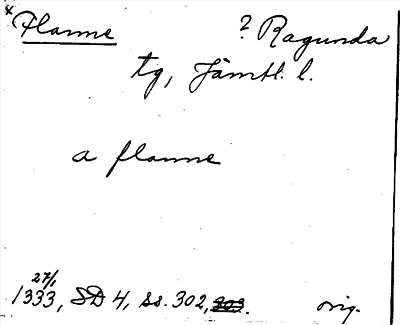 × Flanne ? Ragunda
tg, Jämtl. l.
a flanne
27/1
1333, SD 4, ss. 302, 303. orig.